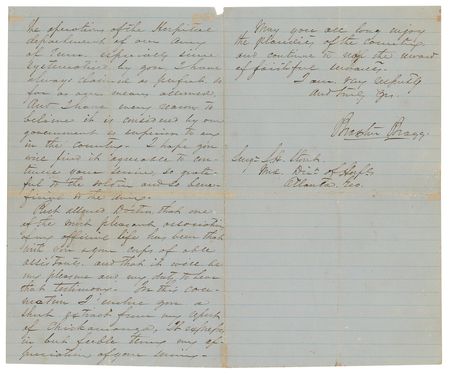 the operations of the Hospital
department of our Army
of Tenn. especially since
systematized by you I have
always claimed as perfect so
far as our means allowed.
And I have every reason to
believe it is considered by our
government as inferior to any
in the country. I hope you
will find it agreeable to con-
tinue your service, so grate-
ful to the soldier and so bene-
ficial to the Army.
Rest assured, Doctor, that one
of the most pleasant associations
of my official life has been that
with you & your corps of able
assistants, and that it will be
my pleasure and my duty to bear
that testimony. In this con-
nection I enclose you a
short extract from my report
of Chickamauga. It expresses
in but feeble terms my ap-
preciation of your services.
May you all long enjoy
the plaudits of the Country
and continue to reap the reward
of faithful servants.
I am very respectfully
and truly Yrs.
Braxton Bragg.
Surgn S. H. Stout
Med. Dirr of Hospls
Atlanta, Geo.